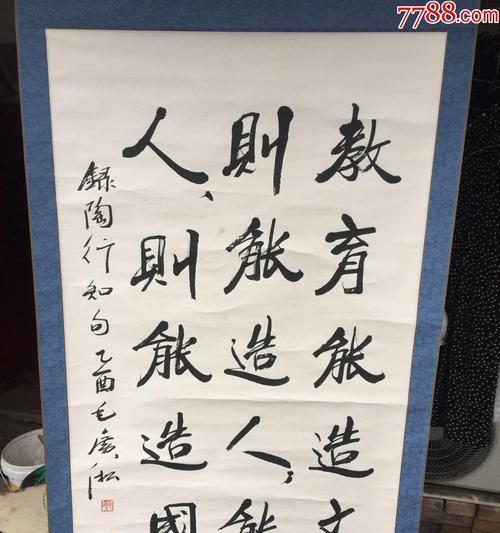 7788.com
教育能造文
則能造人;能
人,則能造國
録陶行知句 乙酉 毛廣淞